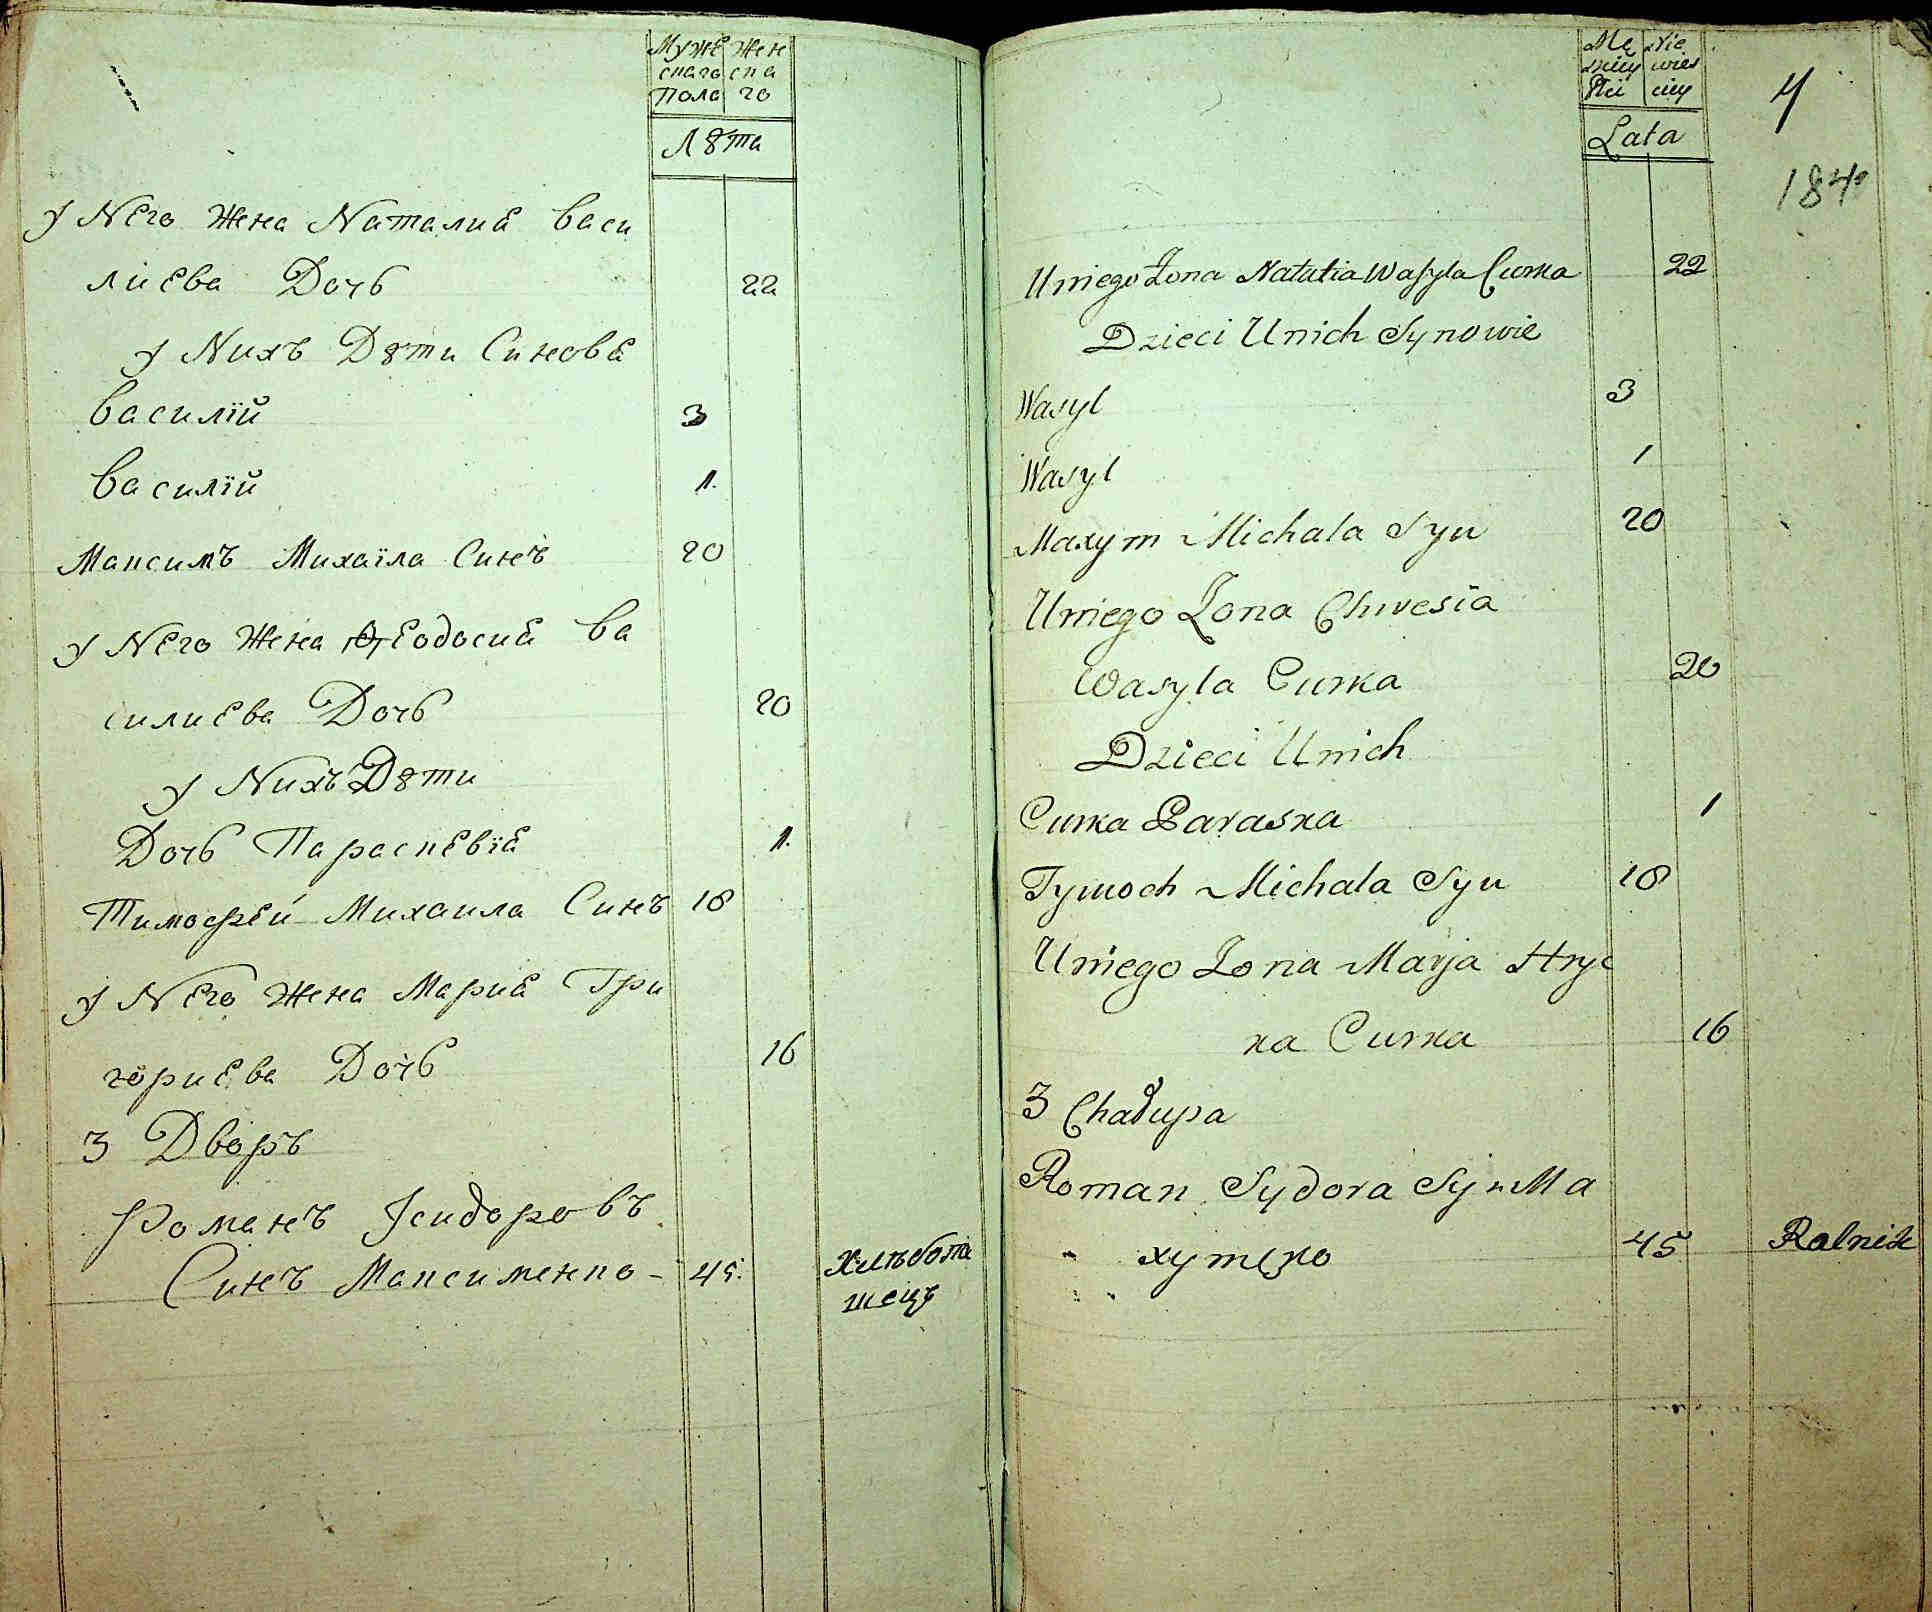 Мужε Жен
скаго ска
Пола го
Лѣта
У Него Жена Наталиѣ Васи
лиева Дочь 22
У Нихъ Дѣти Синовѣ
Василїй 3
Василїй 1.
Максимъ Михаїла Синъ 20
У Него Жена Ѳеодосиѣ Ва
силиева Дочь 20
У Нихъ Дѣти
Дочь Параскевїѣ 1.
Тимофей Михаила Синъ 18
У Него Жена Мариѣ Гри
гориева Дочь 16
3 Дворъ
Романъ Їсидоровъ
Синъ Максименко - 45. Хлѣбопа
шецъ
Mę Nie
skiey wies
Płci ciey
Lata
4
184
Uniego Żona Natalia Wasyla Curka 22
Dzieci Unich Synowie
Wasyl 3
Wasyl 1
Maxym Michala Syn 20
Uniego Żona Chwesia
Wasyla Curka 20
Dzieci Unich
Curka Paraska 1
Tymoch Michala Syn 18
Uniego Żona Marja Hryc
ka Curka 16
3 Chałupa
Roman Sydora Syn Ma
xymęko 45 Rolnik